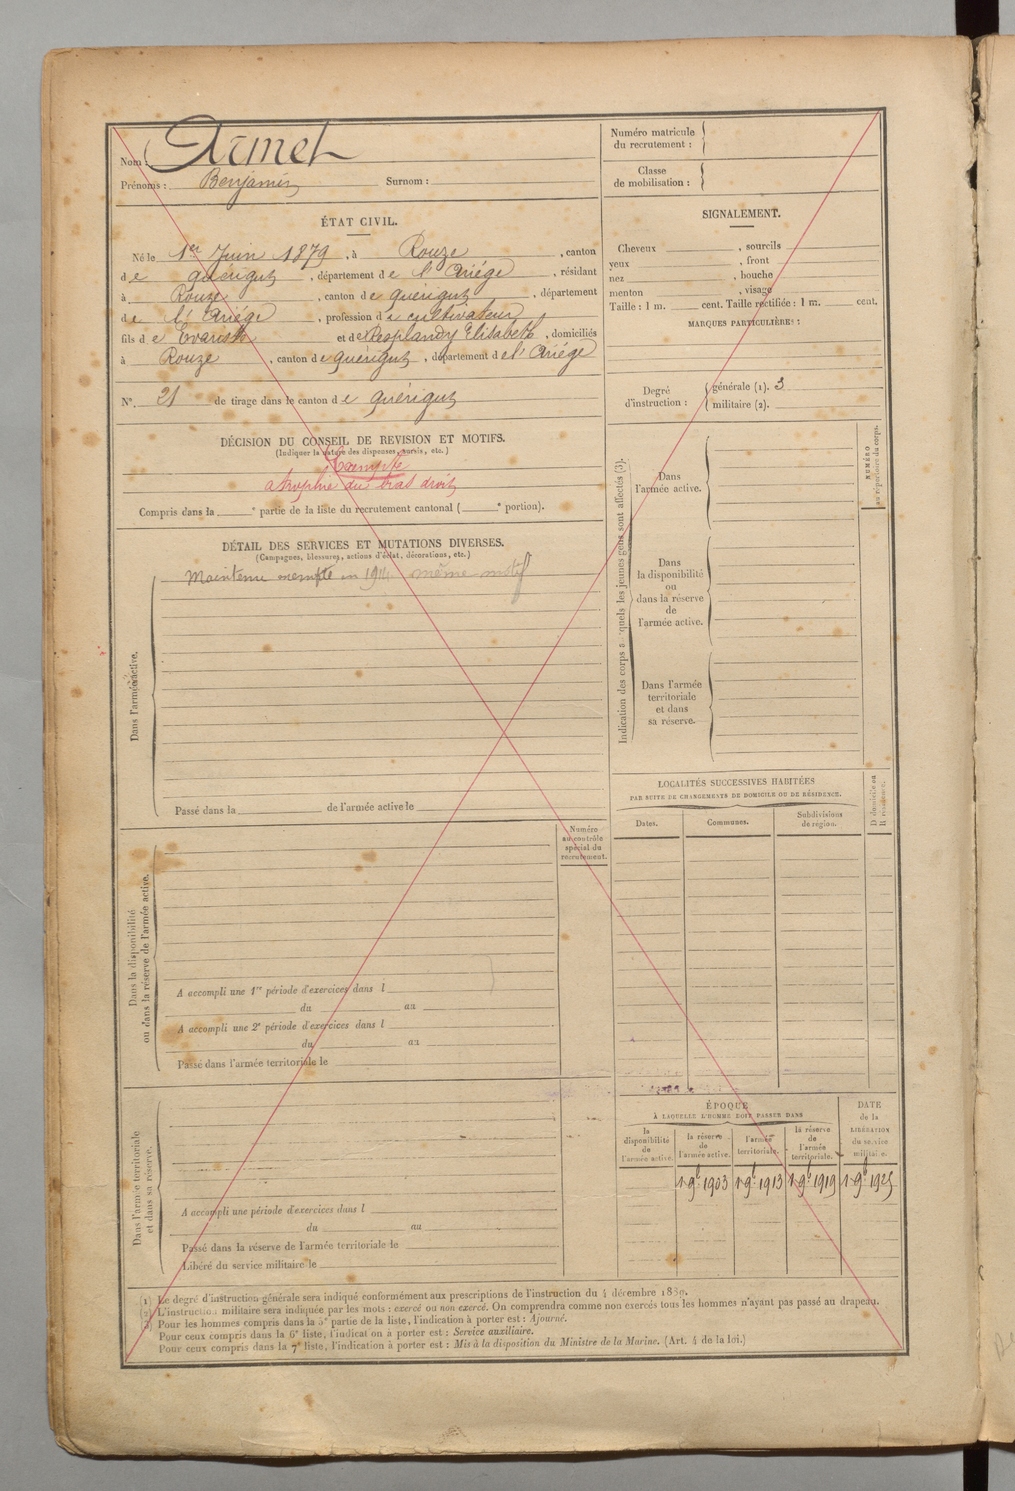 Nom : Armet
Prénoms : Benjamin Surnom :
ÉTAT CIVIL.
Né le 1er Juin 1879, à Rouze, canton
de Quérigut, département de l'Ariége, résidant
à Rouze, canton de Quérigut, département
de l'Ariége, profession de cultivateur
fils de Evariste et de Resplandy Elisabeth, domiciliés
à Rouze, canton de Quérigut, département de l'Ariége
N° 21 de tirage dans le canton de Quérigut
DÉCISION DU CONSEIL DE REVISION ET MOTIFS.
(Indiquer la nature des dispenses, sursis, etc.)
Exempté
atrophie du bras droit
Compris dans la e partie de la liste du recrutement cantonal ( e portion).
DÉTAIL DES SERVICES ET MUTATIONS DIVERSES.
(Campagnes, blessures, actions d'éclat, décorations, etc.)
Maintenu exempté en 1914 même motif
Dans l'armée active.
Passé dans la de l'armée active le
Numéro
au contrôle
spécial du
recrutement.
Dans la disponibilité
ou dans la réserve de l'armée active.
A accompli une 1re période d'exercices dans l
du au
A accompli une 2e période d'exercices dans l
du au
Passé dans l'armée territoriale le
Dans l'armée territoriale
et dans sa réserve.
A accompli une période d'exercices dans l
du au
Passé dans la réserve de l'armée territoriale le
Libéré du service militaire le
Numéro matricule
du recrutement :
Classe
de mobilisation :
SIGNALEMENT.
Cheveux, sourcils
yeux, front
nez, bouche
menton, visage
Taille : 1 m. cent. Taille rectifiée : 1 m. cent.
MARQUES PARTICULIÈRES :
Degré
d'instruction :
générale (1). 3
militaire (2).
Indication des corps auxquels les jeunes gens sont affectés (3).
NUMÉRO
au répertoire du corps.
Dans
l'armée active.
Dans
la disponibilité
ou
dans la réserve
de
l'armée active.
Dans l'armée
territoriale
et dans
sa réserve.
LOCALITÉS SUCCESSIVES HABITÉES
PAR SUITE DE CHANGEMENTS DE DOMICILE OU DE RÉSIDENCE.
Dates.
Communes.
Subdivisions
de région.
D domicile ou
R résidence.
ÉPOQUE
À LAQUELLE L'HOMME DOIT PASSER DANS
DATE
de la
LIBÉRATION
du service
militaire.
la
disponibilité
de
l'armée active.
la réserve
de
l'armée active.
l'armée
territoriale.
la réserve
de
l'armée
territoriale.
1 9b 1903 1 9b 1913 1 9b 1919 1 9b 1925
(1) Le degré d'instruction générale sera indiqué conformément aux prescriptions de l'instruction du 4 décembre 1889.
(2) L'instruction militaire sera indiquée par les mots : exercé ou non exercé. On comprendra comme non exercés tous les hommes n'ayant pas passé au drapeau.
(3) Pour les hommes compris dans la 5e partie de la liste, l'indication à porter est : Ajourné.
Pour ceux compris dans la 6e liste, l'indication à porter est : Service auxiliaire.
Pour ceux compris dans la 7e liste, l'indication à porter est : Mis à la disposition du Ministre de la Marine. (Art. 4 de la loi.)